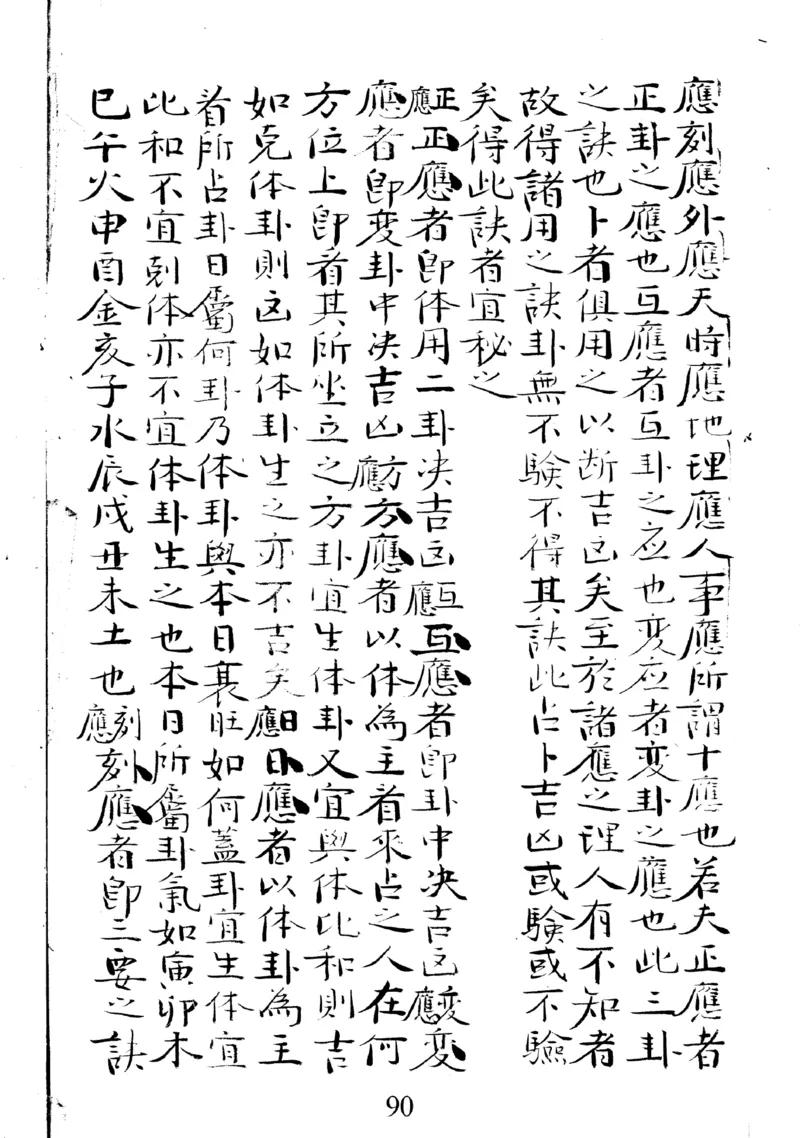 應刻應外應天時應地理應人事應所謂十應也若夫正應者
正卦之應也互應者互卦之应也变应者变卦之應也此三卦
之訣也卜者俱用之以断吉凶矣至於諸應之理人有不知者
故得諸用之訣卦無不驗不得其訣此占卜吉凶或驗或不驗
矣得此訣者宜秘之
正應正應者即体用二卦决吉凶互應互應者即卦中决吉凶变應变
應者即变卦中决吉凶方應方應者以体為主看來占之人在何
方位上即看其所坐立之方卦宜生体卦又宜與体比和則吉
如克体卦則凶如体卦生之亦不吉矣日應日應者以体卦為主
看所占卦日屬何卦乃体卦與本日衰旺如何蓋卦宜生体宜
比和不宜剋体亦不宜体卦生之也本日所屬卦氣如寅卯木
巳午火申酉金亥子水辰戌丑未土也刻應刻應者即三要之訣
90